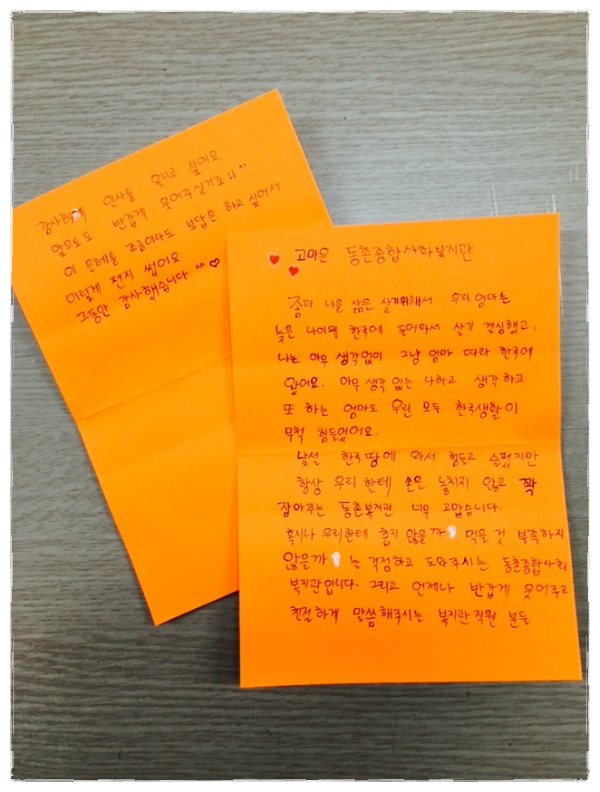 고마운 동촌종합사회복지관
좀더 나은 삶은 살기위해서 우리 엄마는
늦은 나이에 한국에 들어와서 살기 결심했고,
나는 아무 생각없이 그냥 엄마 따라 한국에
왔어요. 아무 생각 없는 나하고 생각 하고
또 하는 엄마도 우린 모두 한국생활이
무척 힘들었어요.
낯설 한국땅에 와서 힘들고 슬펐지만
항상 우리 한테 손은 놓치지 않고 꽉
잡아주는 동촌복지관 너무 고맙습니다.
혹시나 우리한테 춥지 않을까 먹을 것 부족하지
않을까 늘 걱정하고 도와주시는 동촌종합사회
복지관입니다. 그리고 언제나 반갑게 웃어주고
친절하게 말씀해주시는 복지관직원 분들
감사하게 인사를 올리고 싶어요.
앞으로도 반갑게 웃어주실거죠!! ^^
이 은혜를 조금이라도 보답은 하고 싶어서
이렇게 편지 썼어요
그동안 감사했습니다 ^^ ♡